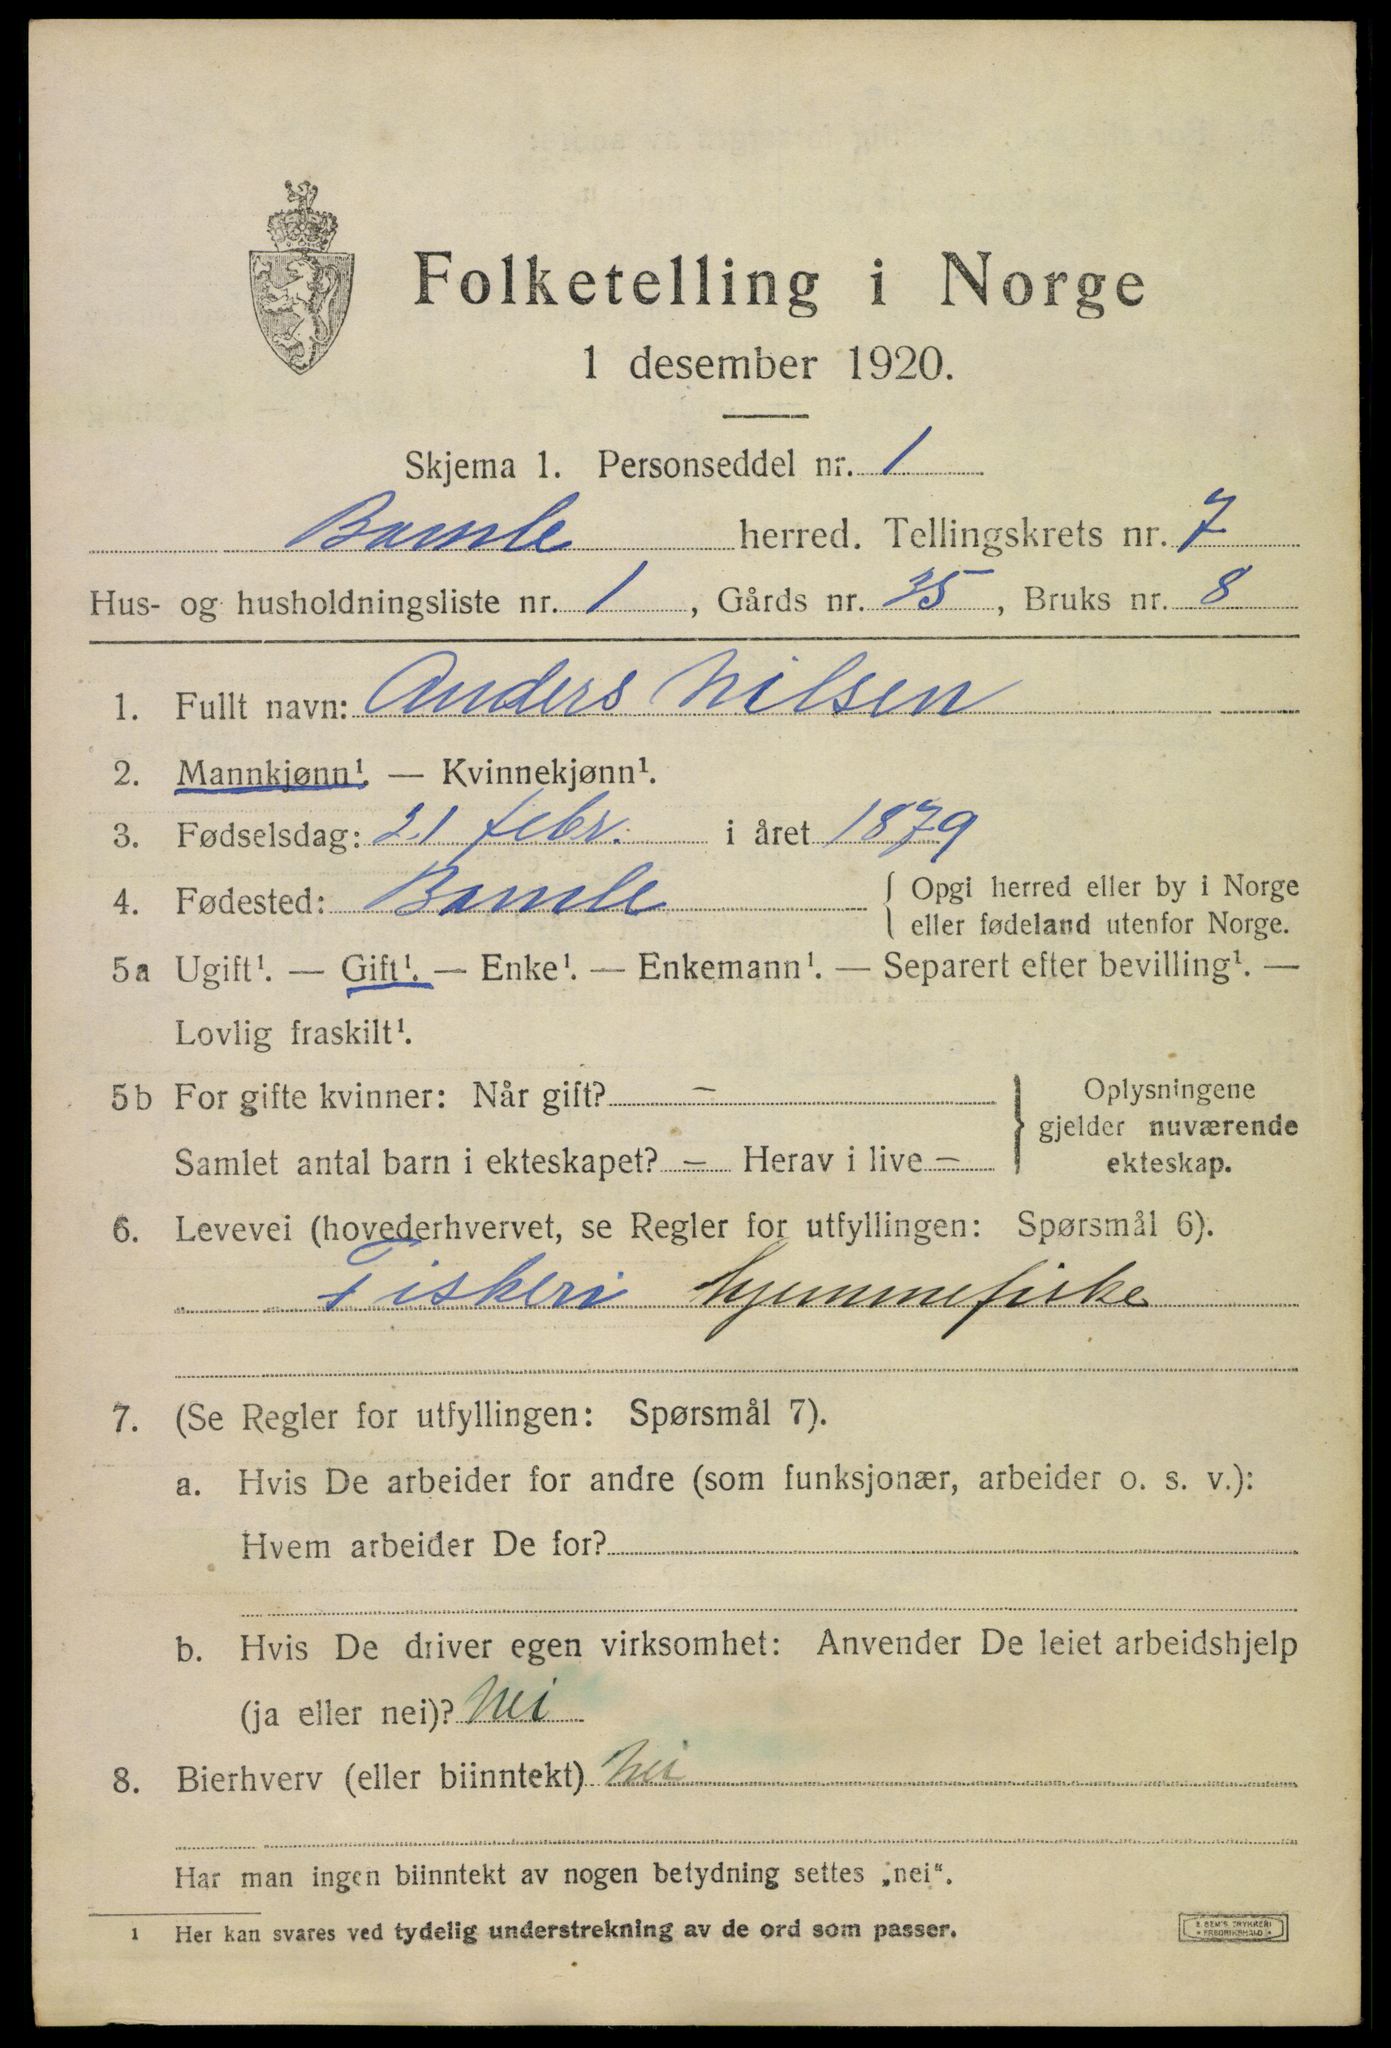 Folketelling i Norge
1 desember 1920.
Skjema 1. Personseddel nr. 1
Bamle herred. Tellingskrets nr. 7
Hus- og husholdningsliste nr. 1, Gårds nr. 35, Bruks nr. 8
1. Fullt navn: Anders Nilsen
2. Mannkjønn¹. — Kvinnekjønn¹.
3. Fødselsdag: 21 febr. i året 1879
4. Fødested: Bamle { Opgi herred eller by i Norge
eller fødeland utenfor Norge.
5a Ugift¹. — Gift¹. — Enke¹. — Enkemann¹. — Separert efter bevilling¹. —
Lovlig fraskilt¹.
5b For gifte kvinner: Når gift? —
Samlet antal barn i ekteskapet? — Herav i live —
} Oplysningene
gjelder nuværende
ekteskap.
6. Levevei (hovederhvervet, se Regler for utfyllingen: Spørsmål 6).
Fiskeri hjemmefiske
7. (Se Regler for utfyllingen: Spørsmål 7).
a. Hvis De arbeider for andre (som funksjonær, arbeider o. s. v.):
Hvem arbeider De for?
b. Hvis De driver egen virksomhet: Anvender De leiet arbeidshjelp
(ja eller nei)? Nei
8. Bierhverv (eller biinntekt) Nei
Har man ingen biinntekt av nogen betydning settes „nei“.
¹ Her kan svares ved tydelig understrekning av de ord som passer.
E. SEM'S TRYKKERI
* FREDRIKSHALD *